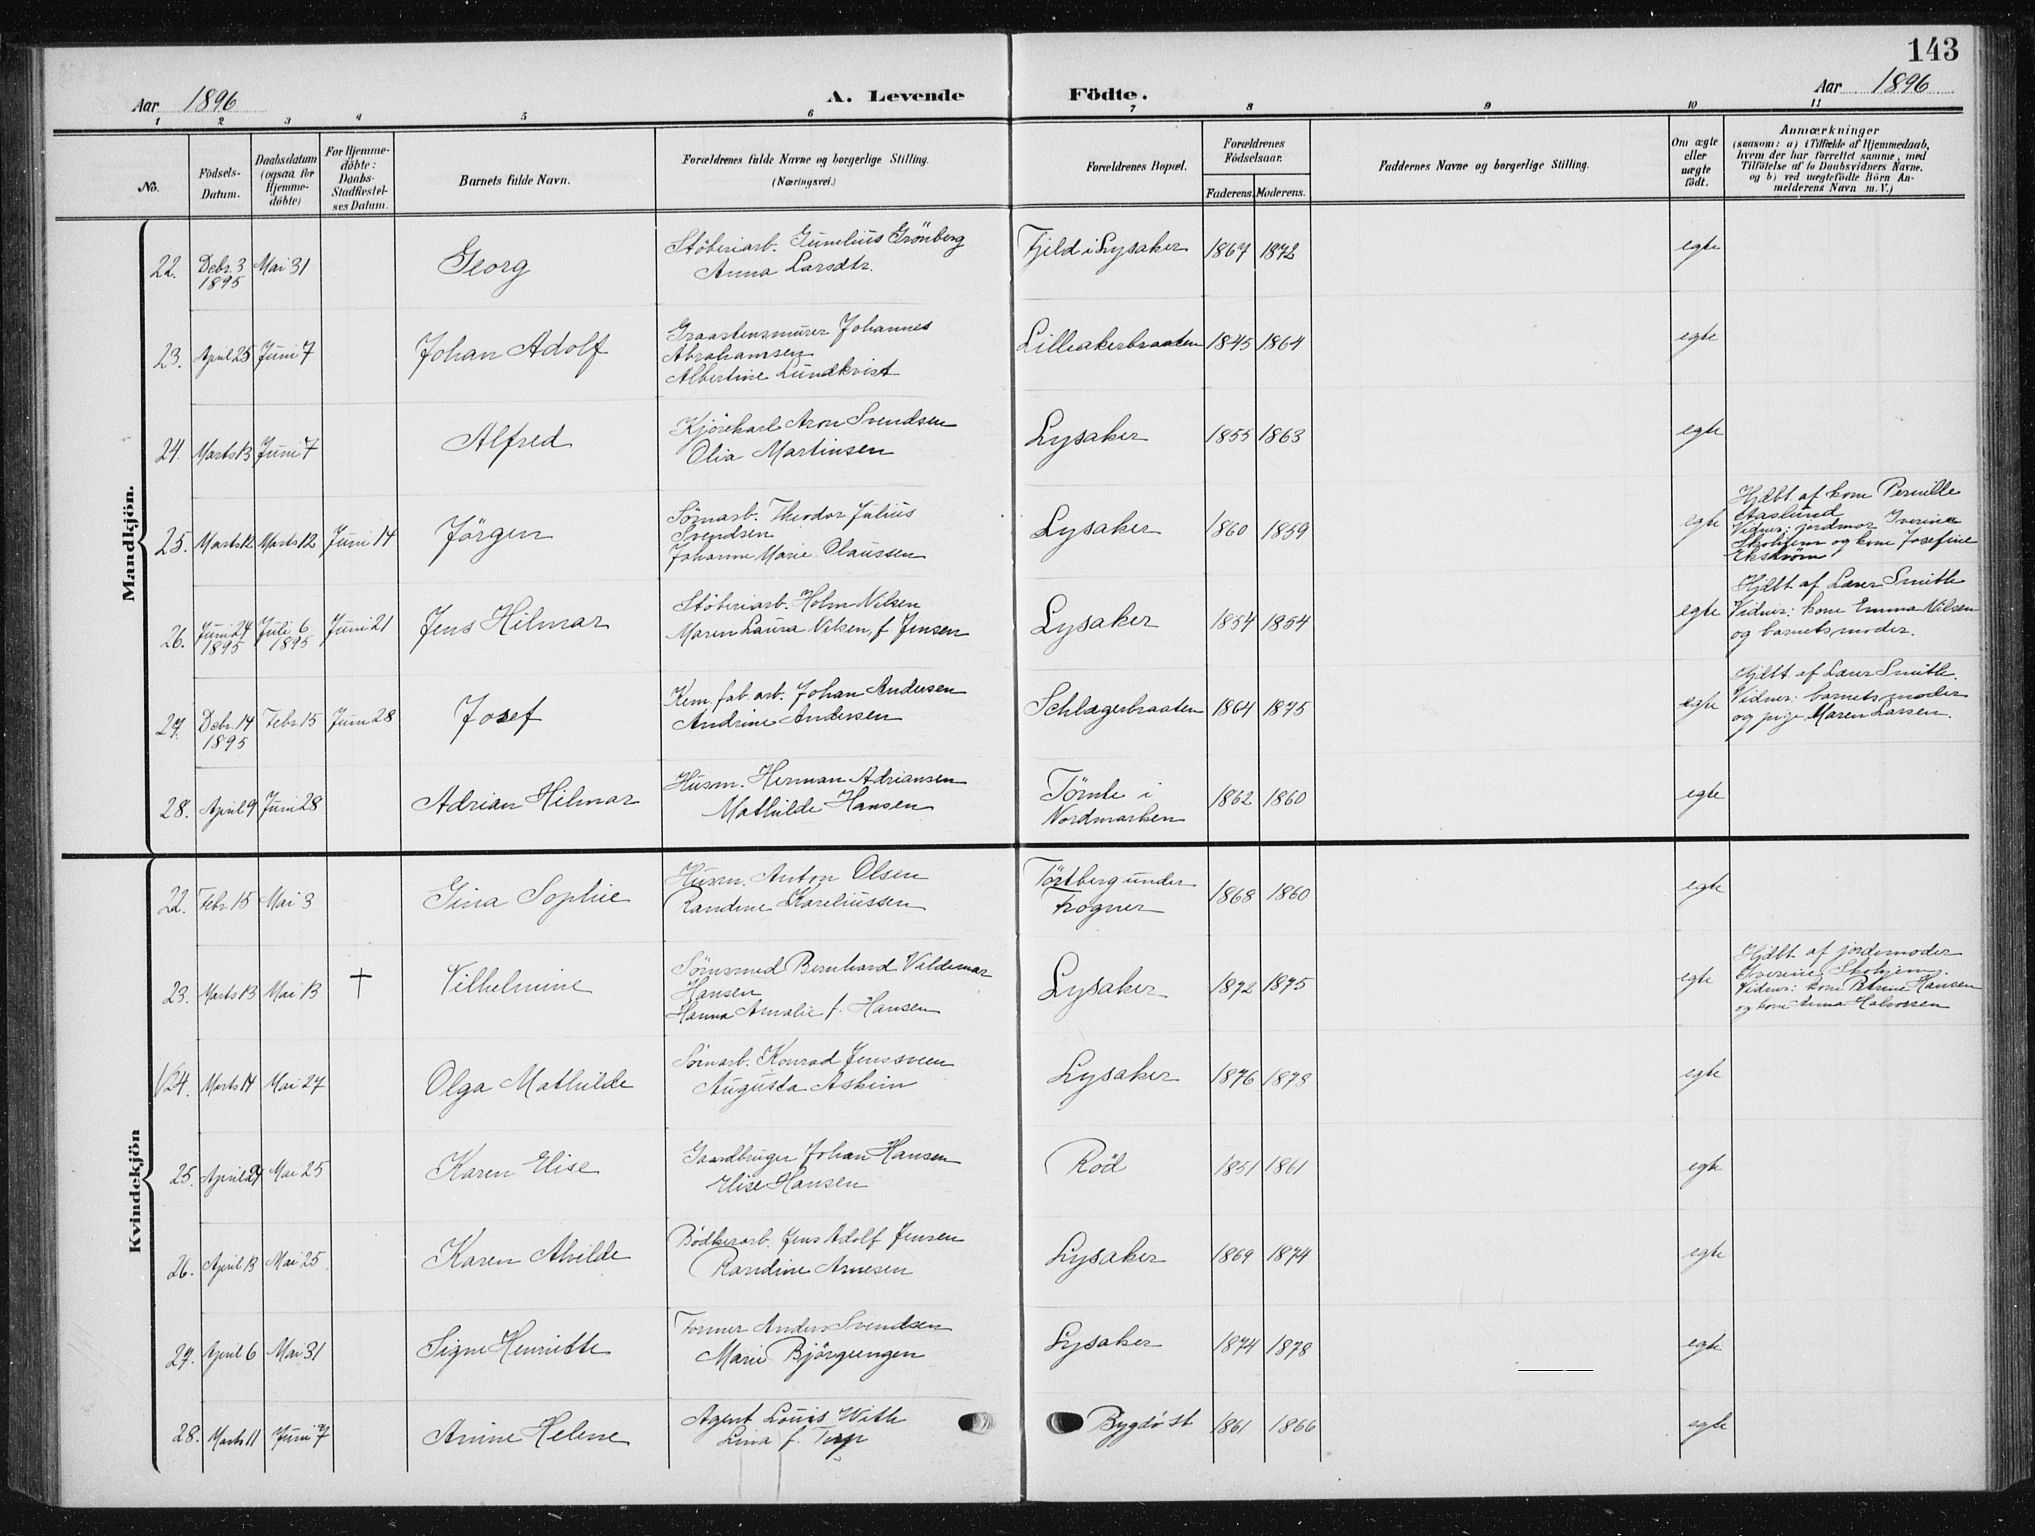 143
Aar 1896
A. Levende Födte.
Aar 1896
1 2 3 4 5 6 7 8 9 10 11
No.
Födsels-
Datum.
Daabsdatum
(ogsaa for
Hjemme-
döbte)
For Hjemme-
döbte:
Daabs-
Stadfæstel-
ses Datum.
Barnets fulde Navn.
Forældrenes fulde Navne og borgerlige Stilling.
(Næringsvei.)
Forældrenes Bopæl.
Forældrenes
Födselsaar.
Faderens. Moderens.
Faddernes Navne og borgerlige Stilling.
Om ægte
eller
uægte
födt.
Anmærkninger
(saasom: a) i Tilfælde af Hjemmedaab,
hvem der har forrettet samme, med
Tilföielse af to Daabsvidners Navne,
og b) ved uægtefödte Börn An-
melderens Navn m. V.)
Mandkjön.
22. Debr. 3 1895 Mai 31 Georg
Støberiarb. Gunelius Grönberg
Anna Larsdtr.
Fjeld i Lysaker 1867 1872 egte
23. April 25 Juni 7 Johan Adolf
Graastensmurer Johannes
Abrahamsen
Albertine Lundkvist
Lilleakerbraaten 1845 1864 egte
24. Marts 13 Juni 7 Alfred
Kjørekarl Aron Svendsen
Olia Martinsen
Lysaker 1855 1863 egte
25. Marts 12 Marts 12 Juni 14 Jörgen
Sömarb. Theodor Julius
Svendsen
Johanne Marie Claussen
Lysaker 1860 1859 egte
Hjdbt. af kone Pernille
Aaslund
Vidner: jordmor Iverine
Skohjem og kone Josefine
Ekström
26. Juni 24 1895 Juli 6 1895 Juni 21 Jens Hilmar
Støberiarb. Holm Nilsen
Maren Laura Nilsen f. Jensen
Lysaker 1854 1854 egte
Hjdbt. af Lærer Smith
Vidner: kone Emma Nilsen
og barnets moder.
27. Debr. 14 1895 Febr. 15 Juni 28 Josef
Kem. fab. arb. Johan Andersen
Andrine Andersen
Schlagerbraaten 1864 1875 egte
Hjdbt. af Lærer Smith.
Vidner: barnets moder
og pige Maren Larsen.
28. April 9 Juni 28 Adrian Hilmar
Husm. Herman Adriansen
Mathilde Hansen
Tømte i
Nordmarken
1862 1860 egte
Kvindekjön
22. Febr. 15 Mai 3 Gina Sophie
Husm. Anton Olsen
Randine Kareliussen
Törtberg under
Frogner
1868 1860 egte
23. Marts 13 Mai 13 † Vilhelmine
Sömsmed Bernhard Valdemar
Hansen
Hanna Amalie f. Hansen
Lysaker 1872 1875 egte
Hjdbt. af jordemoder
Iverine Skohjem.
Vidner: kone Petrine Hansen
og kone Anna Halvorsen
24. Marts 14 Mai 27 Olga Mathilde
Sömarb. Konrad Jenssveen
Augusta Askim
Lysaker 1876 1878 egte
25. April 24 Mai 25 Karen Elise
Gaardbruger Johan Hansen
Elise Hansen
Röd 1851 1861 egte
26. April 13 Mai 25 Karen Alvilde
Bødkerarb. Jens Adolf Jensen
Randine Arnesen
Lysaker 1869 1874 egte
27. April 6 Mai 31 Signe Henriette
Former Anders Svendsen
Marie Björgeengen
Lysaker 1874 1878 egte
28. Marts 11 Juni 7 Anine Helene
Agent Louis With
Lina f. Torp
Bygdö st 1861 1866 egte